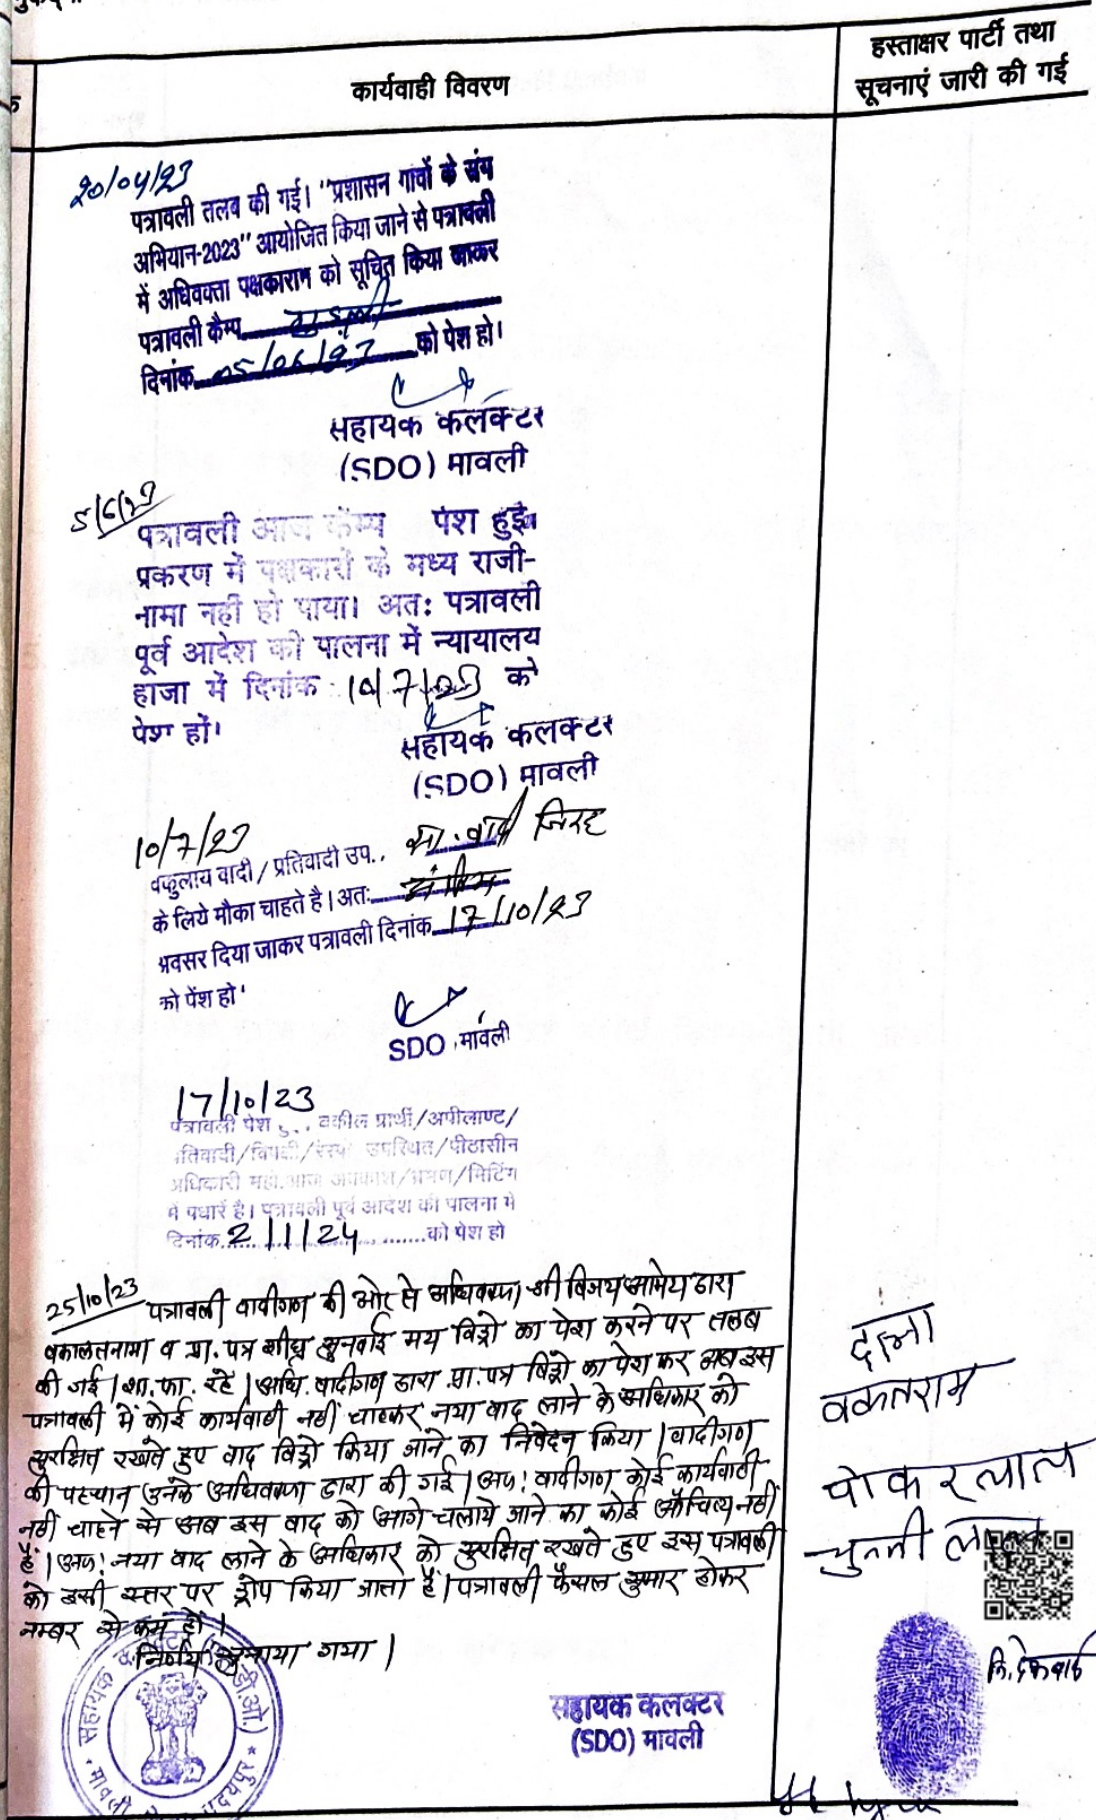 कार्यवाही विवरण
हस्ताक्षर पार्टी तथा
सूचनाएं जारी की गई
20/04/23
पत्रावली तलब की गई। "प्रशासन गांवों के संग
अभियान-2023" आयोजित किया जाने से पत्रावली
में अधिवक्ता पक्षकारान को सूचित किया जाकर
पत्रावली कैम्प
दिनांक 05/06/23 को पेश हो।
सहायक कलक्टर
(SDO) मावली
5/6/23
पत्रावली आज कैम्प पेश हुई।
प्रकरण में पक्षकारों के मध्य राजी-
नामा नहीं हो पाया। अत: पत्रावली
पूर्व आदेश की पालना में न्यायालय
हाजा में दिनांक 10/7/23 को
पेश हों।
सहायक कलक्टर
(SDO) मावली
10/7/23
वकुलाय वादी / प्रतिवादी उप.. सा. वादी जिरह
के लिये मौका चाहते है। अतः अंतिम
अवसर दिया जाकर पत्रावली दिनांक 17/10/23
को पेंश हो'
SDO मावली
17/10/23
पत्रावली पेश वकील प्रार्थी/अपीलाण्ट/
उपस्थित/पीठासीन
अधिकारी महो. आज अवकाश/भ्रमण/मिटिंग
में पधारें है। पत्रावली पूर्व आदेश की पालना मे
दिनांक 2/1/24 को पेश हो
25/10/23 पत्रावली वादीगण की ओर से अधिवक्ता श्री विजय आमेय द्वारा
वकालतनामा व प्रा. पत्र शीघ्र सुनवाई मय विड्रो का पेश करने पर तलब
की गई। शा. फा. रहे। अधि. वादीगण द्वारा प्रा. पत्र विड्रो का पेश कर अब इस
पत्रावली में कोई कार्यवाही नहीं चाहकर नया वाद लाने के अधिकार को
सुरक्षित रखते हुए वाद विड्रो किया जाने का निवेदन किया। वादीगण
की पहचान उनके अधिवक्ता द्वारा की गई। अतः वादीगण कोई कार्यवाही
नहीं चाहने से अब इस वाद को आगे चलाये जाने का कोई औचित्य नहीं
हैं। अतः नया वाद लाने के अधिकार को सुरक्षित रखते हुए इस पत्रावली
को इसी स्तर पर ड्रोप किया जाता हैं। पत्रावली फैसल शुमार होकर
नम्बर से कम हों।
निर्णय सुनाया गया।
सहायक कलक्टर
(SDO) मावली
वकतराम
पोकरलाल
चुन्नी लाल